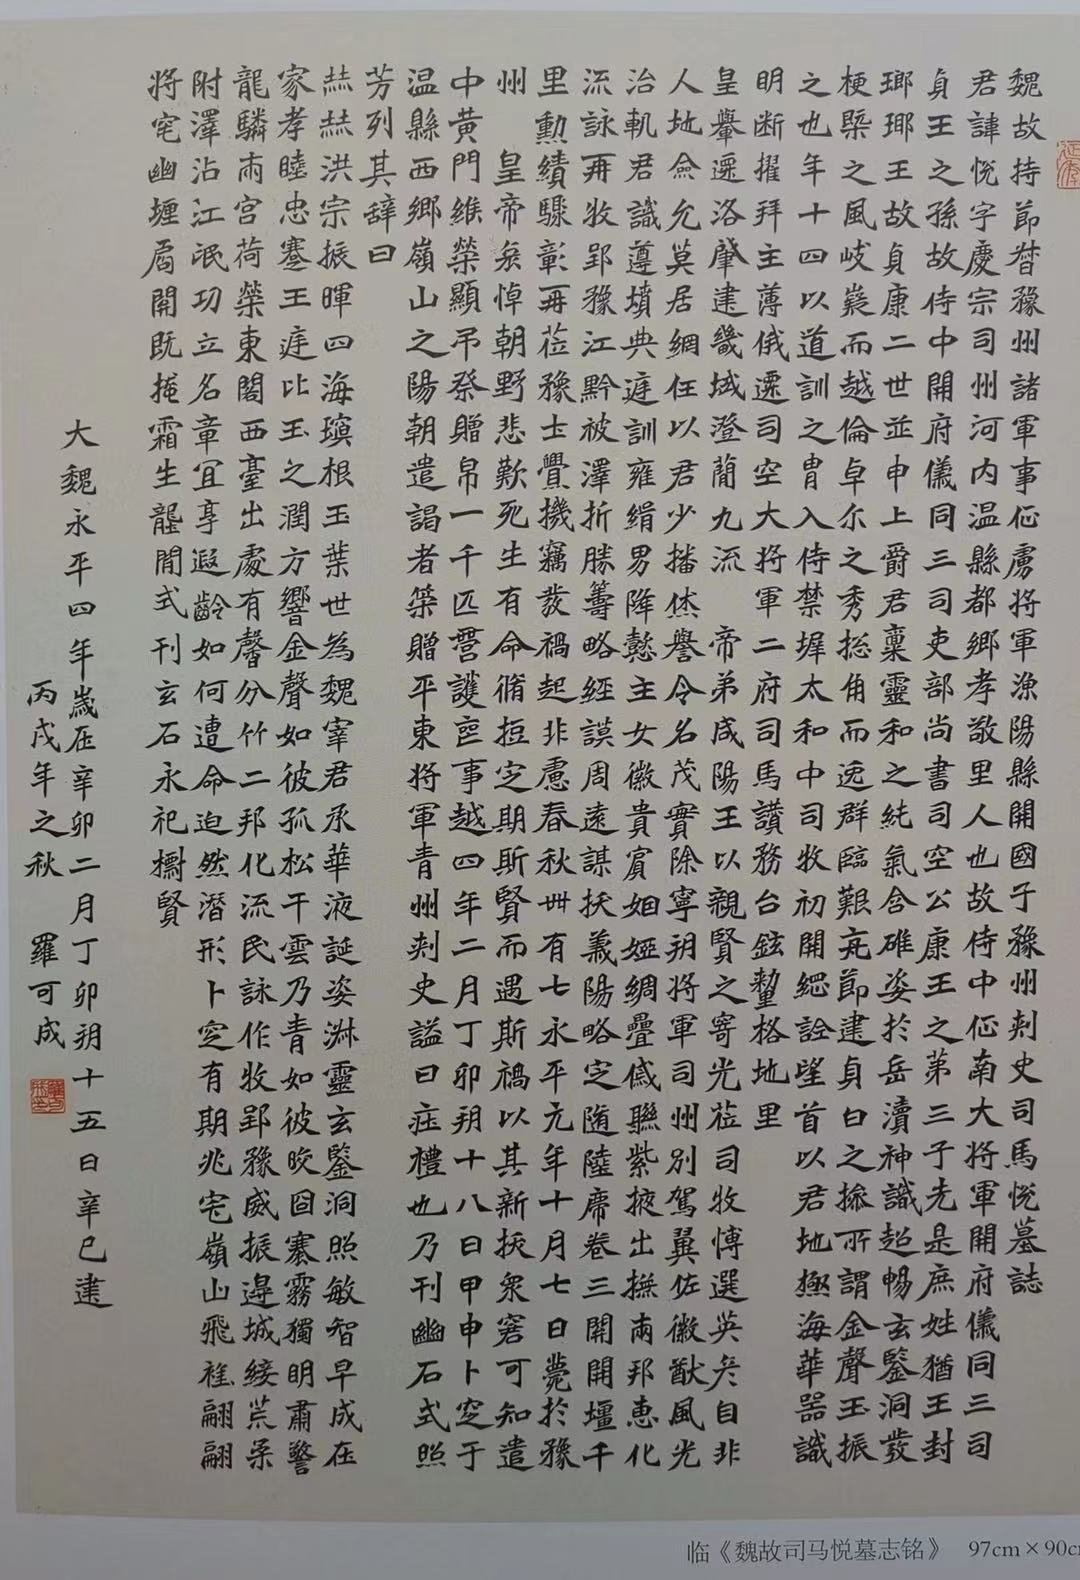 魏故持節督豫州諸軍事征虜將軍漁陽縣開國子豫州刾史司馬悅墓誌
君諱悅字慶宗司州河內溫縣都鄉孝敬里人也故侍中征南大將軍開府儀同三司
貞王之孫故侍中開府儀同三司吏部尚書司空公康王之第三子先是庶姓猶王封
瑯瑘王故貞康二世並申上爵君稟靈和之純氣含碓姿於岳瀆神識超暢玄鑒洞發
梗槩之風岐嶷而越倫卓尒之秀揔角而逸群臨艱亮節建貞白之操所謂金聲玉振
之也年十四以道訓之胄入侍禁墀太和中司牧初開綱詮望首以君地極海華器識
明断擢拜主薄俄遷司空大將軍二府司馬讚務台鉉鞏格地里
皇轝遷洛肇建畿域澄蕳九流 帝弟咸陽王以親賢之寄光莅司牧博選英彥自非
人地僉允莫居綱任以君少播休譽令名茂實除寧朔將軍司州別駕翼佐徽猷風光
治軌君識遵墳典庭訓雍緝男降懿主女徽貴賓姻婭綢疊戚聯紫掖出撫兩邦惠化
流詠再牧郢豫江黔被澤折勝籌略經謨周遠謀扶義陽略定隨陸席卷三關開壃千
里勳績驟彰再莅豫士舋機竊發禍起非慮春秋卌有七永平元年十月七日薨於豫
州 皇帝矜悼朝野悲歎死生有命脩短定期斯賢而遇斯禍以其新挾衆窘可知遣
中黃門維榮顯弔祭贈帛一千匹營護喪事越四年二月丁卯朔十八日甲申卜窆于
溫縣西鄉嶺山之陽朝遣謁者策贈平東將軍青州刾史謚曰莊禮也乃刊幽石式照
芳列其辞曰
𦱤𦱤洪宗振暉四海瓊根玉葉世為魏宰君承華液誕姿淋靈玄鑒洞照敏智早成在
家孝睦忠蹇王庭比玉之潤方響金聲如彼孤松干雲乃青如彼晈囧褰霧獨明肅警
龍驎雨宮荷榮東閤西臺出處有馨分竹二邦化流民詠作牧郢豫威振邊城綏荒柔
附澤沾江㞋功立名章宜享遐齡如何遭命迫然潛形卜窆有期兆宅嶺山飛旌翩翩
將窀幽堙扃開既掩霜生壠閒式刊玄石永祀攡賢
大魏永平四年歲在辛卯二月丁卯朔十五日辛巳建
丙戌年之秋 羅可成
临《魏故司马悦墓志铭》 97cm×90c